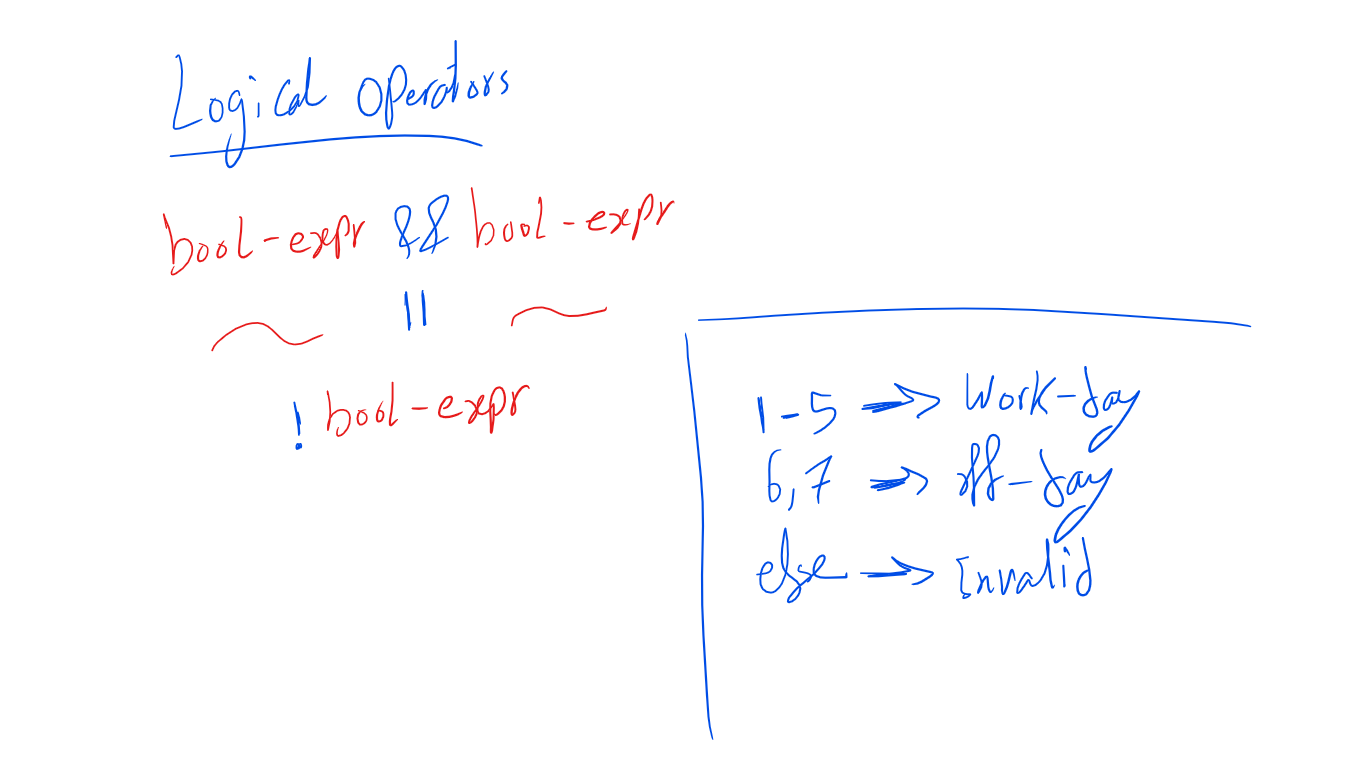 Logical Operators
bool-expr && bool-expr
||
! bool-expr
1-5 → Work-day
6,7 → off-day
else → Invalid